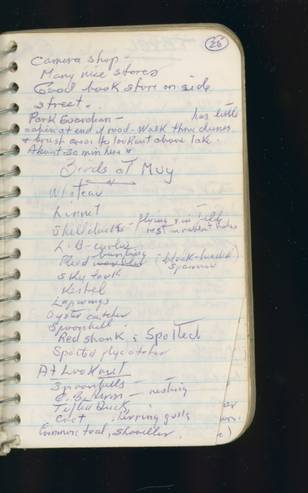 26
Camera shop -
Many nice stores
Good book store on side
street.
Park Guardian - has little
cabin at end of road - Walk three dunes
& brush across to lookout above lak.
About 30 min here
Birds at Muy
Wheatear
Linnet
Shellducks - flying & in field
rest in rabbit holes
L. B.
Reed bunting (black-headed
sparrow)
Sky lark
Kestrel
Lapwings
Oyster catcher
Spoonbill
Red shank & Spotted
Spotted flycatcher
At Lookout
Spoonbills - nesting
Tufted Duck
Coot
Herring gulls
Common teal, Shoveller